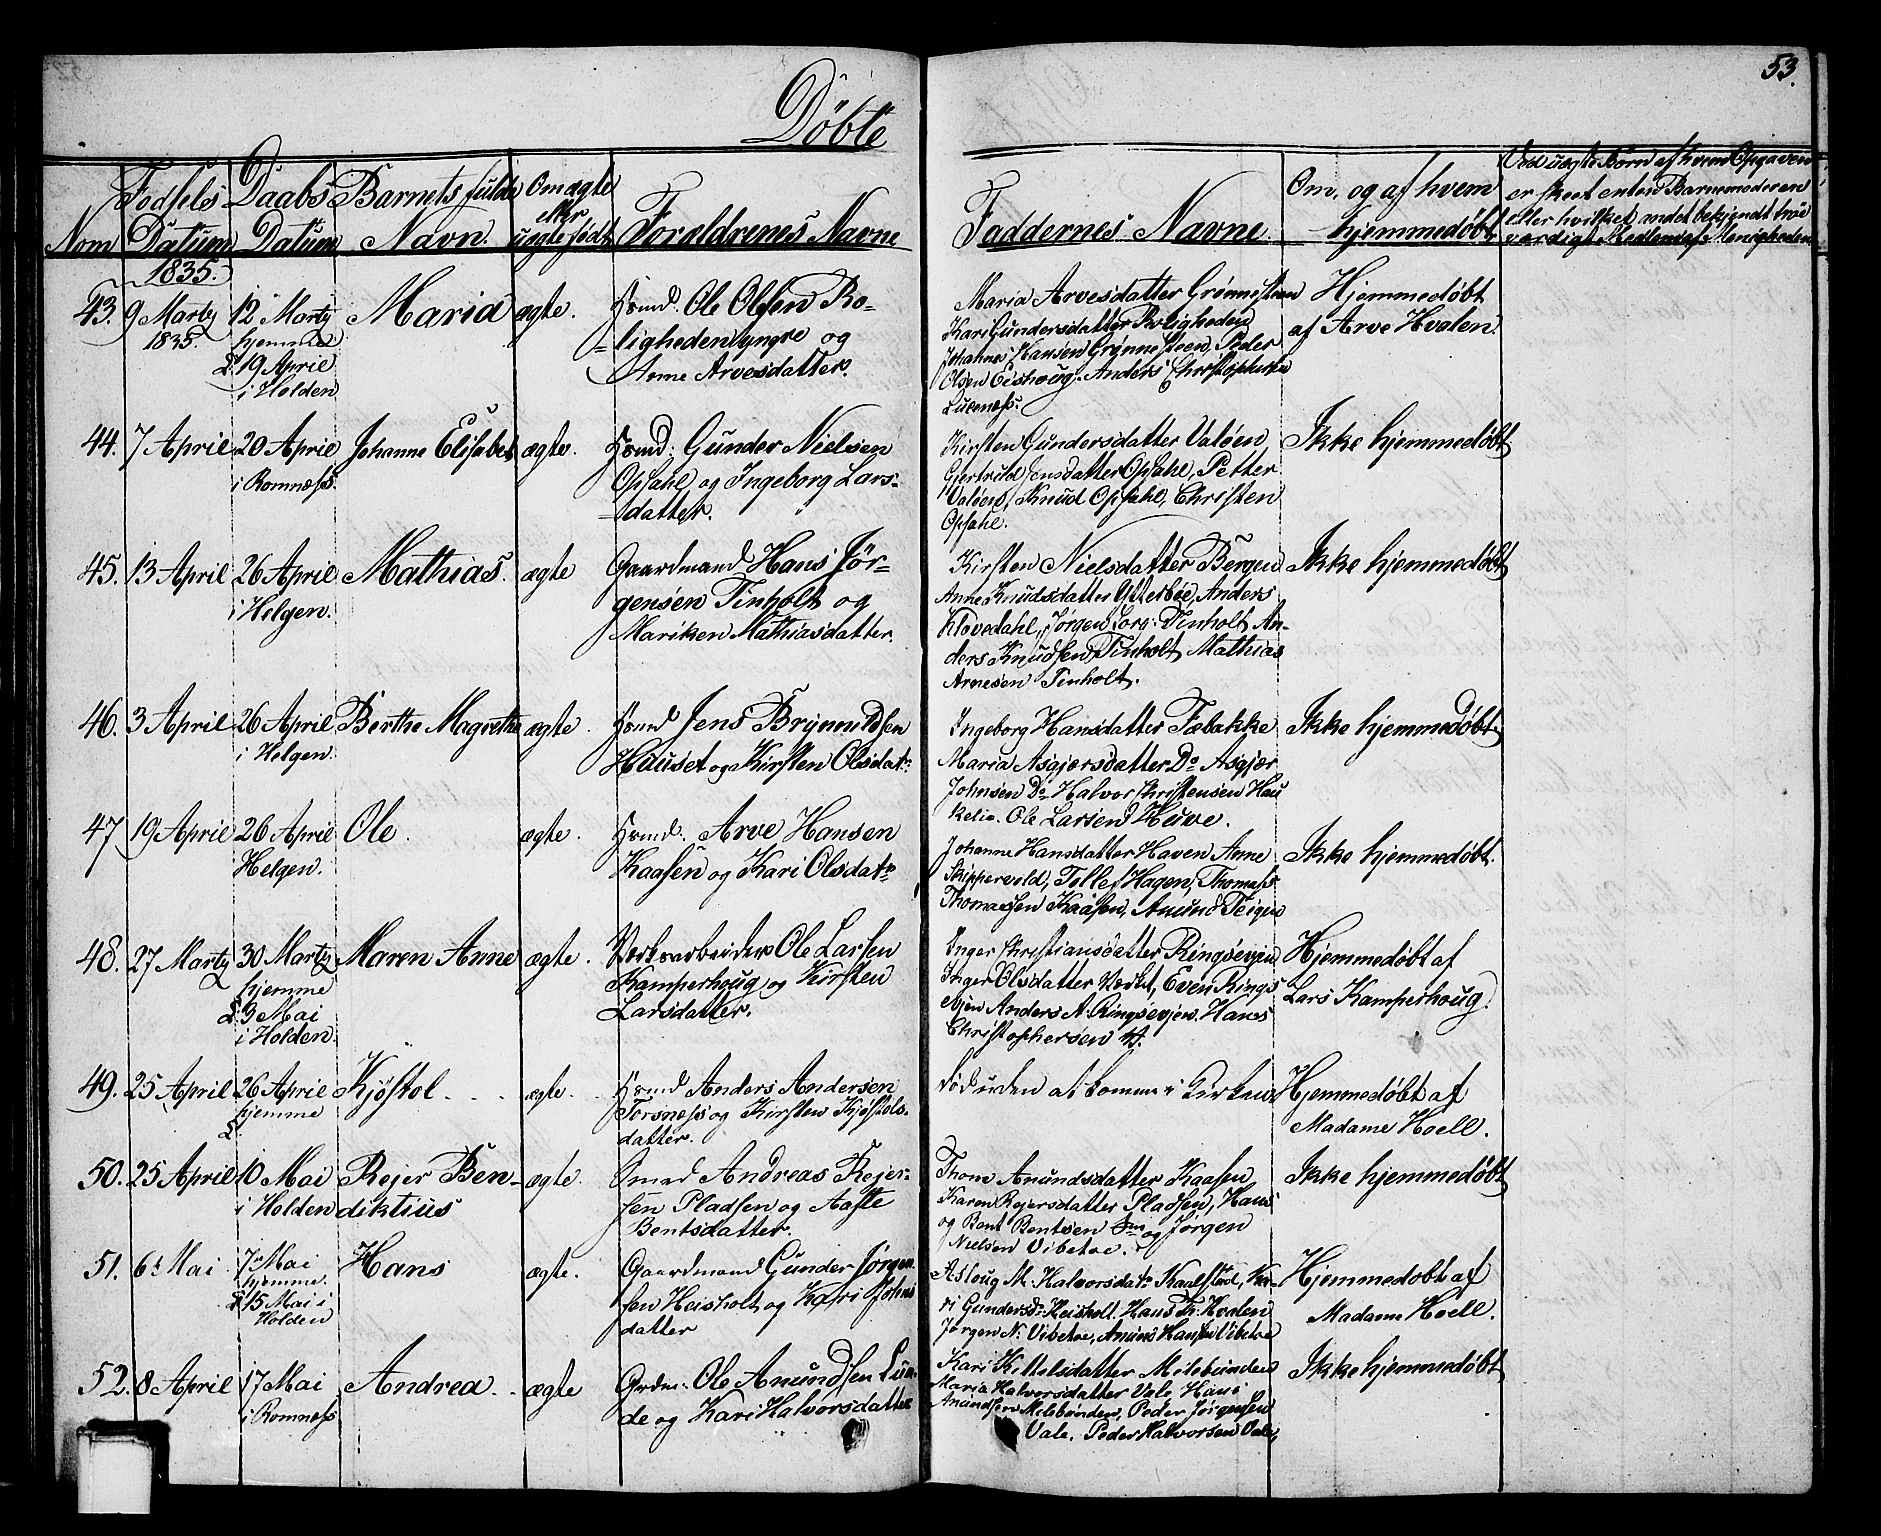 53.
Döbte
Nom
Fødsels Datum
Daabs Datum
Barnets fulde Navn.
Om ægte eller uægte født
Forældrenes Navne
Faddernes Navne.
Om, og af hvem hjemmedøbt
Ved uægte Børn af hvem Opgaven
er skeet enten Barnemoderen
eller hvilket andet bekjendt troe
værdigt Medlem af Menigheden
1835.
43. 9 Martÿ 1835. 12 Martÿ Maria ægte.
hjemme
19 April
i Holden
Huusmd. Ole Olsen Ro-
ligheden yngre og
Anne Arvesdatter.
Maria Arvesdatter Grønnesteen
Kari Gundersdatter Roligheden
Johannes Hansen Grønnesteen, Peder
Olsen Eishoug. Anders Christophersen
Lucenæss.
Hjemmedøbt
af Arve Hvalen.
44. 7 April 20 April Johanne Elisabet ægte.
i Romnæss.
Huusmd: Gunder Nielsen
Opsahl og Ingeborg Lars-
datter.
Kirsten Gundersdatter Valøen
Gjertruld Jensdatter Opsahl, Petter
Valøen, Knud Opsahl, Christen
Opsahl.
Ikke hjemmedøbt
45. 13 April 26 April Mathias. ægte
i Helgen.
Gaardmand Hans Jør-
gensen Tinholt og
Mariken Mathiasdatter.
Kirsten Nielsdatter Bergen
Anne Knudsdatter Ytterbøe, Anders
Klovedahl, Jørgen Torg: Tinholt An-
ders Knudsen Tinholt Mathias
Arnesen Tinholt.
Ikke hjemmedøbt
46. 3 April 26 April Berthe Magrethe ægte.
i Helgen.
Huusmd Jens Brynnildsen
Hauset og Kirsten Olsdatr
Ingeborg Hansdatter Fæbakke
Maria Asgjærsdatter Do Asgjær
Johnsen Do Halvor Christensen Hau
kelie. Ole Larsen Huve.
Ikke hjemmedøbt.
47 19 April 26 April Ole. ægte.
Helgen.
Huusmd. Arve Hansen
Kaasen og Kari Olsdatr
Johanne Hansdatter Haven Anne
Skippervold, Tollef Hagen, Thomass
Thomassen Kaasen, Amund Teigen
Ikke hjemmedøbt.
48. 27 Martÿ 30 Martÿ Maren Anne ægte.
hjemme
9 Mai
i Holden.
Verksarbeider Ole Larsen
Kamperhoug og Kirsten
Larsdatter.
Inger Christiansdatter Ringsevjen
Inger Olsdatter Værket, Even Rings
evjen Anders N. Ringsevjen. Hans
Christophersen
Hjemmedøbt af
Lars Kamperhoug.
49. 25 April 26 April Kjøstol ægte.
hjemme
Huusmd Anders Andersen
Torsnæss og Kirsten Kjøstols-
datter.
død uden at komme i Kirken
Hjemmedøbt af
Madame Hoell.
50. 25 April 10 Mai Rejer Ben- ægte.
i Holden diktius
Smed Andreas Rejer-
sen Pladsen og Aaste
Bentsdatter.
Thom Amundsdatter Kaasen
Karen Rejersdatter Pladsen, Hans
og Bent Bentsen og Jørgen
Nielsen Vibetoe.
Ikke hjemmedøbt
51. 6t Mai 7 Mai Hans ægte.
hjemme.
15 Mai i
Holden
Gaardmand Gunder Jørgen
sen Heisholt og Kari Johns
datter
Asloug M. Halvorsdatr Kaalstad, Ka-
ri Gundersdr Heisholt. Hans Tr. Hvalen
Jørgen N. Vibetoe, Hansen Vibetoe
Hjemmedobt af
Madame Hoell.
52. 8 April 17 Mai Andrea ægte
i Romnæss
Grdm. Ole Amundsen Lun-
de og Kari Halvorsdatter
Kari Kittelsdatter Milebunden
Maria Halvorsdatter Vale, Hans
Amundsen Milebunden, Peder Jørgensen
Vale. Peder Halvorsen Vale.
Ikke hjemmedøbt